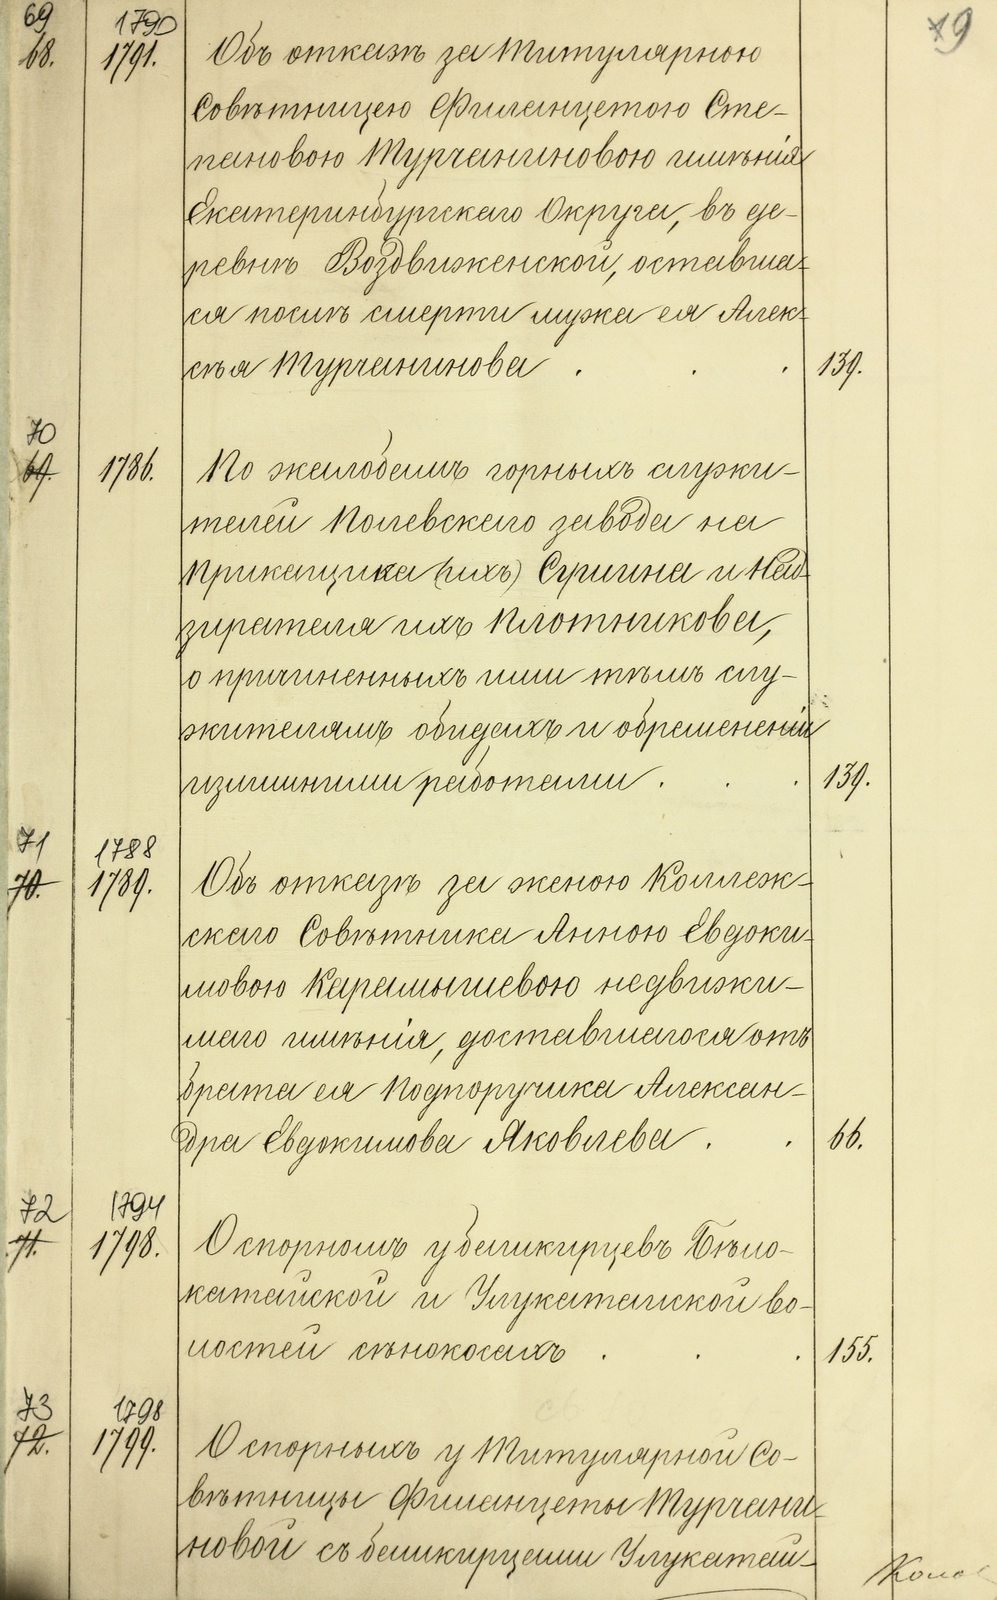 69 1790 79
68. 1791. Объ отказѣ за Титулярною
Совѣтницею Филанцетою Сте-
пановою Турчаниновою имѣнія
Екатеринбургскаго Округа, въ де-
ревнѣ Воздвиженской, оставша-
ся послѣ смерти мужа ея Алек-
сѣя Турчанинова . . . 139.
70
69. 1786. По жалобамъ горныхъ служи-
телей Полевскаго завода на
Прикащика (ихъ) и Над-
зирателя ихъ Плотникова,
о причиненныхъ ими тѣмъ слу-
жителямъ обидахъ и обремененіи
излишними работами . . . 139.
71 1788
70. 1789. Объ отказѣ за женою Коллеж-
скаго Совѣтника Анною Евдоки-
мовою Карамышевою недвижи-
маго имѣнія, доставшагося отъ
брата ея Подпоручика Алексан-
дра Евдокимова Яковлева . . 66.
72 1794
71. 1798. О спорномъ у башкирцевъ Бѣло-
катайской и Улукатайской во-
лостей сѣнокосахъ . . . 155.
73 1798
72. 1799. О спорныхъ у Титулярной Со-
вѣтницы Филанцеты Турчани-
новой съ башкирцами Улукатай-